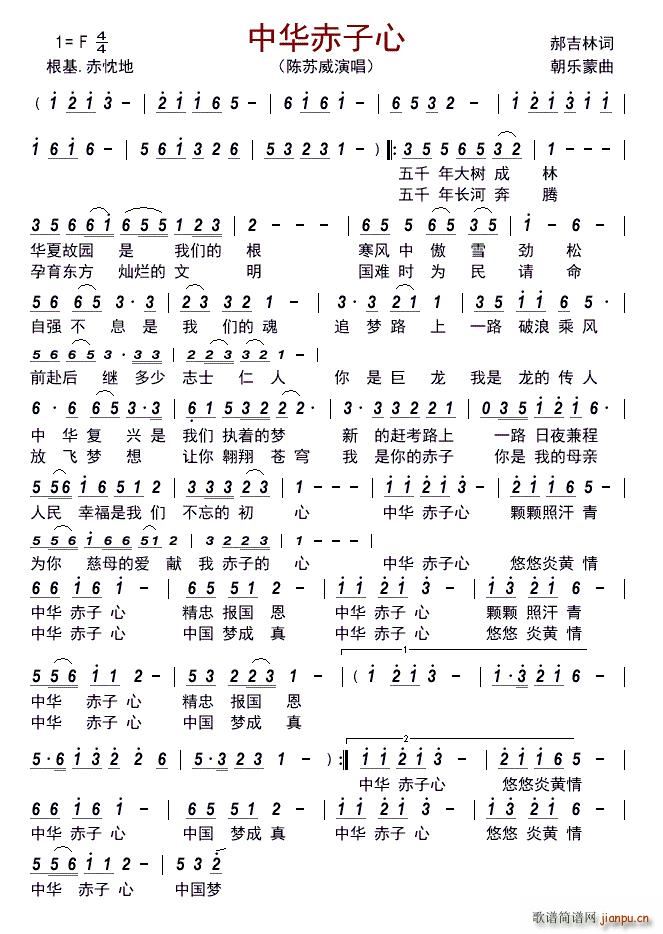 中华赤子心
1= F 4/4
郝吉林词
根基.赤忱地
（陈苏威演唱）
朝乐蒙曲
( 1 2 1 3 - | 2 1 1 6 5 - | 1 6 1 2 · | 6 5 3 2 - | 1 2 1 3 1 1 |
1 6 1 6 - | 5 6 1 3 2 6 | 5 3 2 3 1 | 1 - - - ) ‖: 3 5 5 6 5 3 2 | 1 - - - |
五千 年大树 成 林
五千 年长河 奔 腾
3 5 6 6 1 6 5 5 5 1 2 3 | 2 - - - | 6 5 5 3 2 3 5 5 | 1 - 6 - |
华夏故园 是 我们的 根 寒风 中 傲 雪 劲 松
孕育东方 灿烂的 文 明 国难 时 为 民 请 命
5 6 6 5 3 · 3 | 2 2 3 3 2 2 1 - | 3 · 3 2 1 1 - | 3 5 1 1 6 5 - |
自强 不 息 是 我 们的 魂 追 梦 路 上 一路 破浪 乘 风
5 6 6 5 3 · 3 3 | 2 2 3 3 2 2 1 - |
前赴后 继 多少 志士 仁 人 你 是 巨 龙 我是 龙的 传 人
6 · 6 6 5 3 · 3 | 6 1 5 3 2 2 2 · | 3 · 3 3 2 2 1 | 0 3 5 1 2 1 6 · |
中 华 复 兴 是 我们 执着的 梦 新 的赶考路上 一路 日夜兼程
放 飞 梦 想 让你 翱翔 苍 穹 我 是你的 赤子 你是 我 的母亲
5 5 6 1 6 5 1 2 | 3 3 3 2 2 3 1 - | 1 1 2 1 3 - | 2 1 1 1 6 5 - |
人民 幸福是我 们 不忘的 初 心 中华 赤子心 颗颗照汗 青
5 5 6 1 6 6 5 1 | 3 2 2 3 1 - |
为你 慈母的爱 献 我 赤子的 心 中华 赤子心 悠悠炎黄 情
6 6 1 6 1 - | 6 5 5 1 2 - | 1 1 2 1 3 - | 2 1 1 3 2 - |
中华 赤子 心 精忠 报国 恩 中华 赤子 心 颗颗 照汗 青
中华 赤子 心 中国 梦成 真 中华 赤子 心 悠悠 炎黄 情
5 5 6 1 1 2 - | 5 3 2 2 3 1 - | ( 1 2 1 3 - | 1 · 3 2 1 6 - |
1
中华 赤子 心 精忠 报国 恩
中华 赤子 心 中国 梦成 真
5 · 6 1 3 2 2 6 | 5 · 3 2 2 3 1 - ) :‖ 1 1 2 1 3 - | 2 1 1 6 5 - |
2
中华 赤子心 悠悠炎黄情
6 6 1 6 1 - | 6 5 5 1 2 - | 1 1 2 1 3 - | 2 1 1 3 2 - |
中华 赤子 心 中国 梦成 真 中华 赤子 心 悠悠 炎黄 情
5 5 6 1 1 2 - | 5 5 3 2
中华 赤子 心 中国梦
歌谱简谱网
jianpu.cn